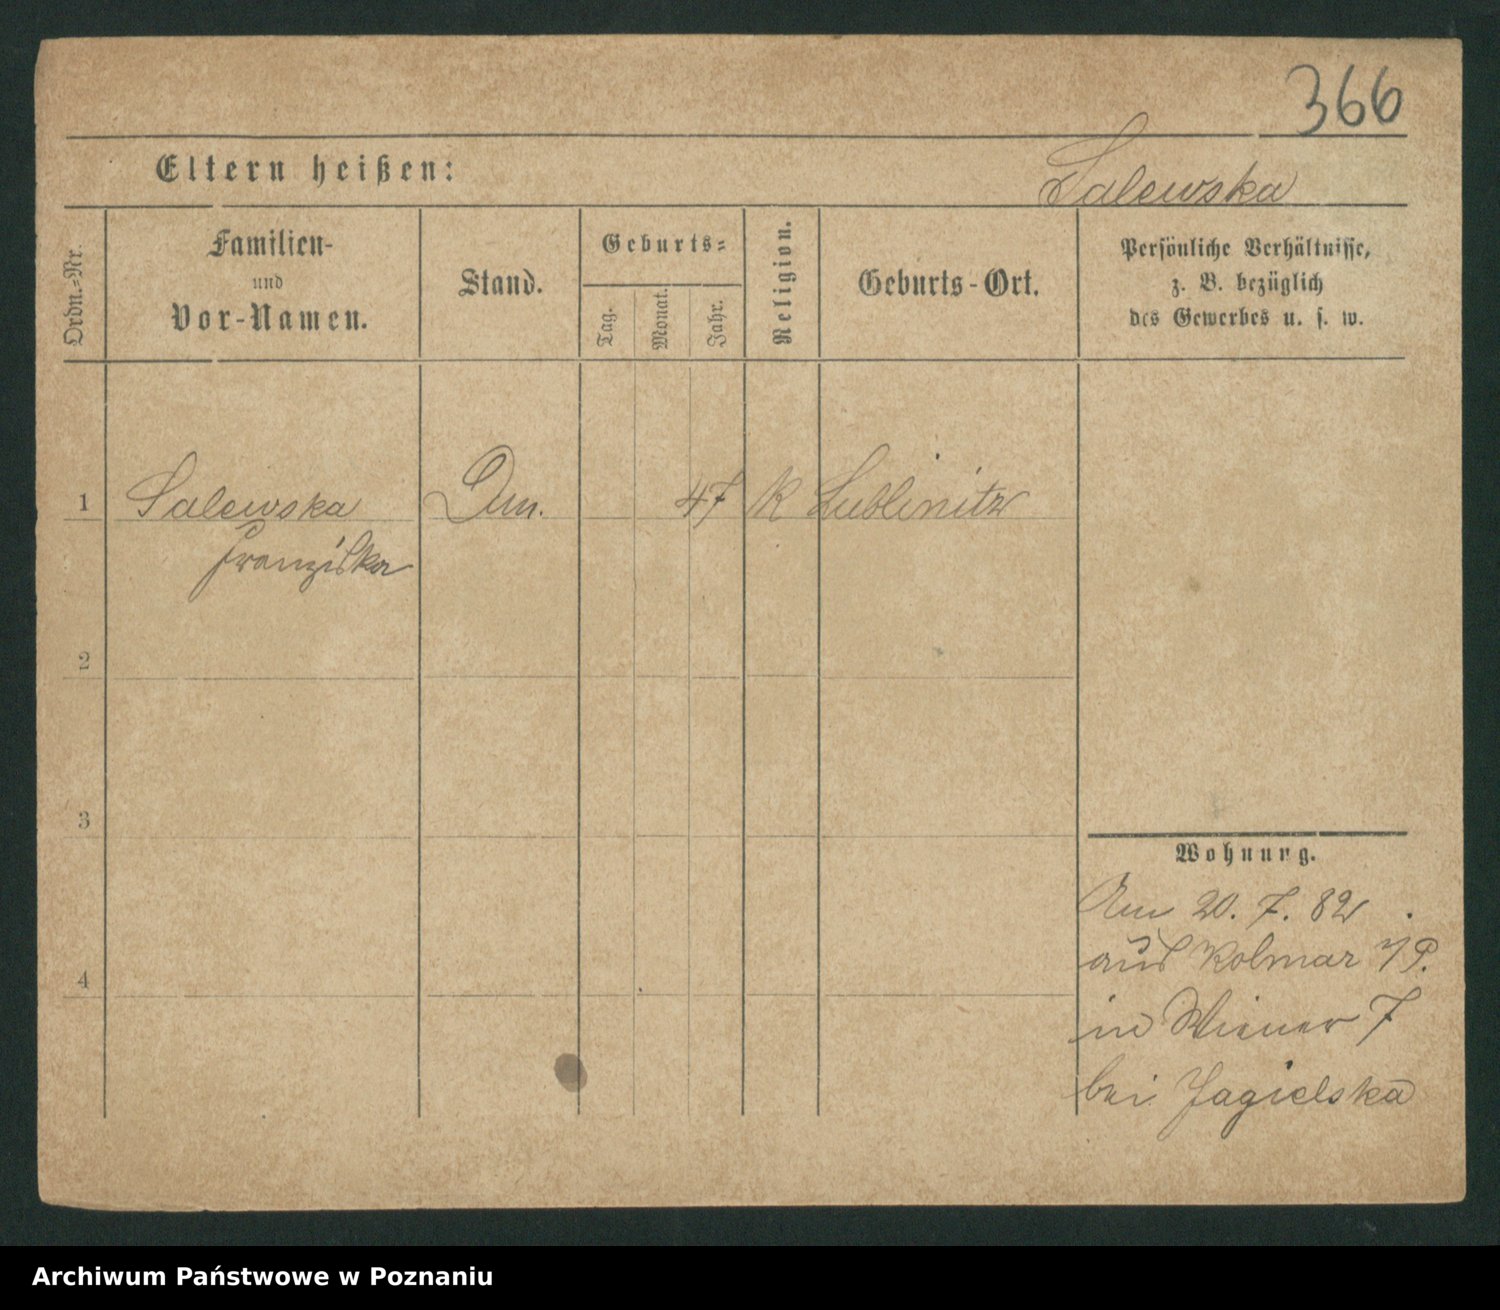 366
Eltern heißen:
Salewska
Ordn.-Nr.
Familien-
und
Vor-Namen.
Stand.
Geburts-
Tag.
Monat.
Jahr.
Religion.
Geburts-Ort.
Persönliche Verhältnisse,
z. B. bezüglich
des Gewerbes u. s. w.
1 Salewska 47 K Lublinitz
Franziska
2
3
4
Wohnung.
Am 20. 7. 82
aus Kolmar i/P.
in Wiener 7
bei Jagielska
Archiwum Państwowe w Poznaniu